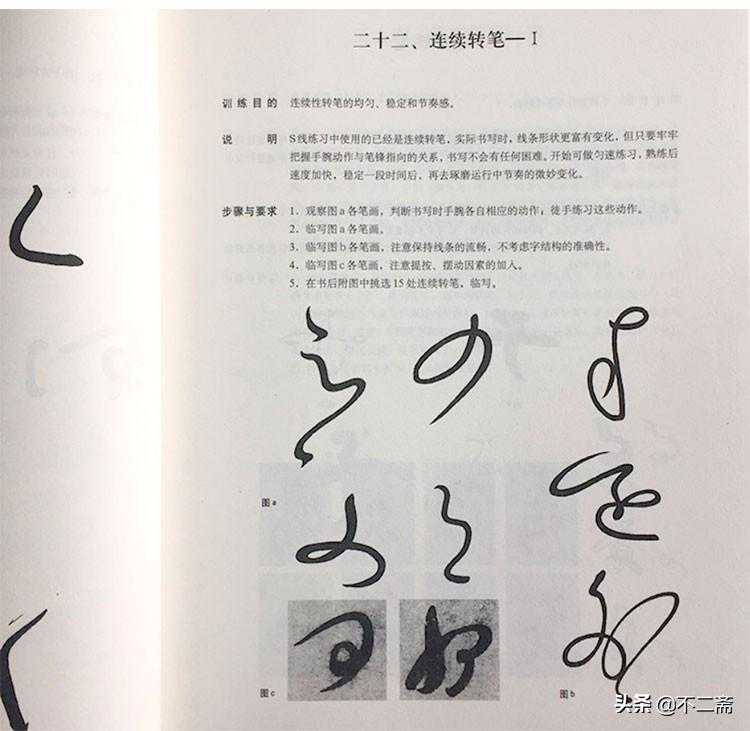 二十二、连续转笔—I
训练目的 连续性转笔的均匀、稳定和节奏感。
说 明 S线练习中使用的已经是连续转笔,实际书写时,线条形状更富有变化,但只要牢牢
把握手腕动作与笔锋指向的关系,书写不会有任何困难。开始可做匀速练习,熟练后
速度加快,稳定一段时间后,再去琢磨运行中节奏的微妙变化。
步骤与要求 1. 观察图a各笔画,判断书写时手腕各自相应的动作;徒手练习这些动作。
2. 临写图a各笔画。
3. 临写图b各笔画,注意保持线条的流畅,不考虑字结构的准确性。
4. 临写图c各笔画,注意提按、摆动因素的加入。
5. 在书后附图中挑选15处连续转笔,临写。
图a
图c
图b
头条 @不二斋